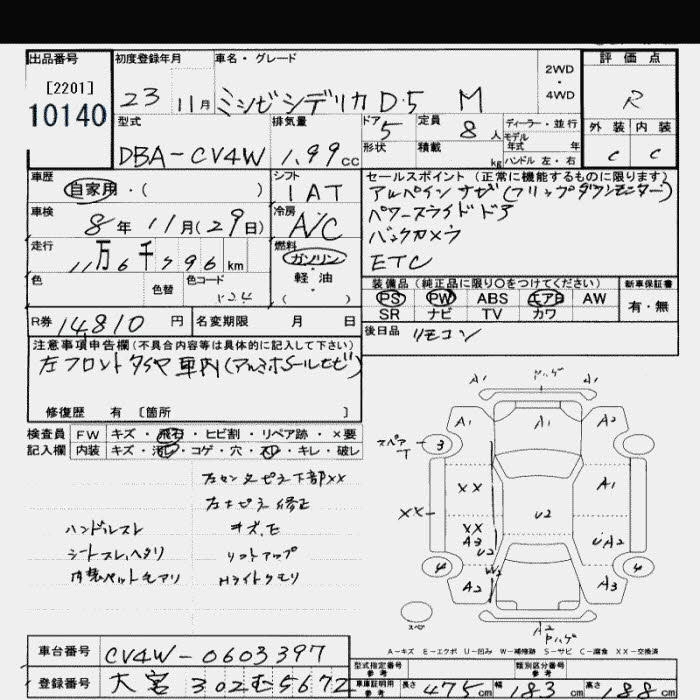 出品番号
[2201]
10140
初度登録年月
23 11月
車名・グレード
ミツビシデリカ D.5 M
2WD
・
4WD
評価点
R
外装 内装
C C
型式
DBA-CV4W
排気量
1.99 cc
ドア
5
形状
定員
8 人
積載
kg
ディーラー・並行
モデル
年式 年
ハンドル 左・右
車歴
自家用・( )
シフト
1AT
車検
8年 11月(29日)
冷房
A/C
走行
11万6千796 km
燃料
ガソリン
・
軽油
( )
色
色替
色コード
R券 14,810 円
名変期限 月 日
セールスポイント(正常に機能するものに限ります)
アルパインナビ(フリップダウンモニター)
パワースライドドア
バックカメラ
ETC
装備品(純正品に限り○をつけてください)
PS PW ABS エアB AW
SR ナビ TV カワ
新車保証書
有・無
後日品 リモコン
注意事項申告欄(不具合内容等は具体的に記入して下さい)
左フロントタイヤ車内
修復歴 有 〔箇所 〕
検査員 FW キズ・飛石・ヒビ割・リペア跡・×要
記入欄 内装 キズ・汚レ・コゲ・穴・スレ・キレ・破レ
左センターピラー下部XX
ハンドルスレ
シートスレ、ヘタリ
リフトアップ
Hライトクモリ
A1 ハゲ A1
A1 A1 A2
スペア
T
3
XX A1
XX XX U2
A3 U2 UA2
4 W2 4
A2 A3
スペア
A2
ハゲ
A-キズ E-エクボ U-凹み W-補修跡 S-サビ C-腐食 XX-交換済
車台番号 CV4W-0603397
登録番号 大宮 302 む 5672
型式指定番号
参考
類別区分番号
参考
車庫証明用
参考
長さ 475cm 幅 183cm 高さ 188cm